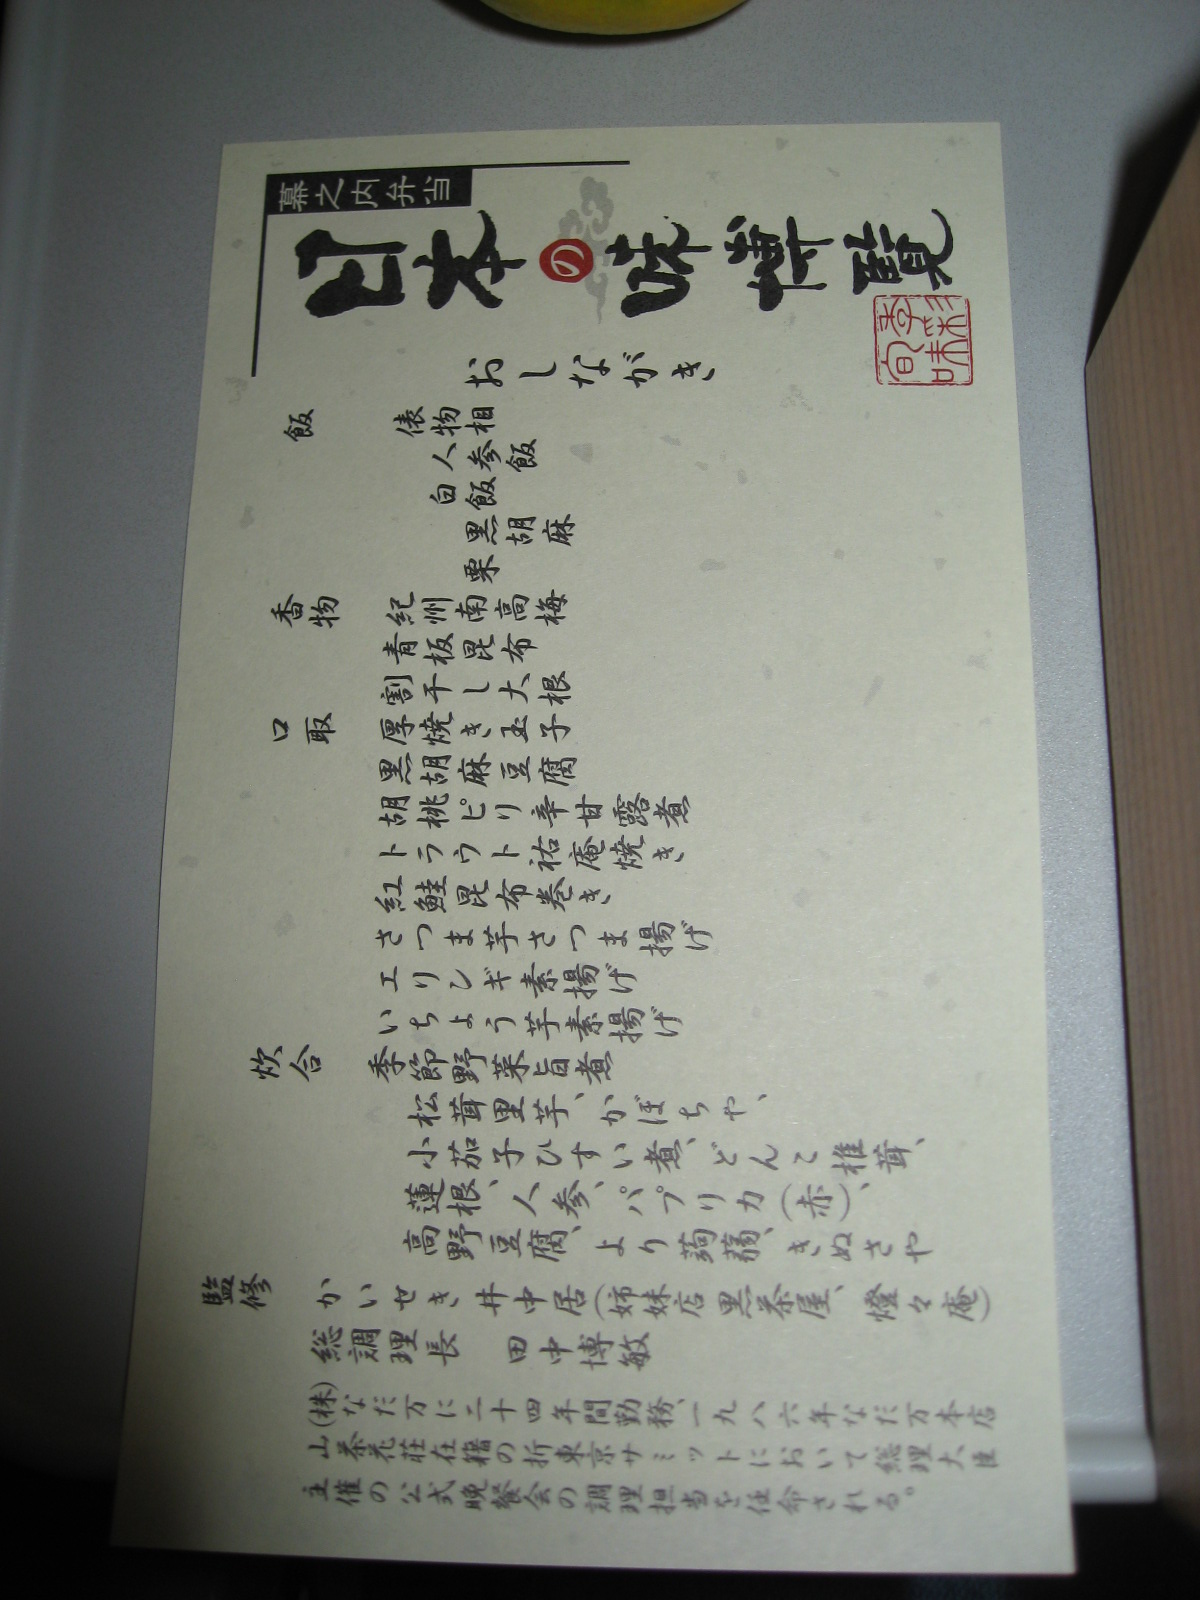 幕之内弁当
日本の味博覧
おしながき
飯
俵物相
人参飯
白飯
黒胡麻
栗
香物
紀州南高梅
青板昆布
割干し大根
口取
厚焼き玉子
黒胡麻豆腐
胡桃ピリ辛甘露煮
トラウト祐庵焼き
紅鮭昆布巻き
さつま芋さつま揚げ
エリンギ素揚げ
いちょう芋素揚げ
炊合
季節野菜旨煮
松茸里芋、かぼちゃ、
小茄子ひすい煮、どんこ椎茸、
蓮根、人参、パプリカ(赤)、
高野豆腐、より蒟蒻、きぬさや
監修
かいせき 井中居(姉妹店 黒茶屋、燈々庵)
総調理長 田中博敏
(株)なだ万に二十四年間勤務、一九八六年なだ万本店
山茶花荘在籍の折東京サミットにおいて総理大臣
主催の公式晩餐会の調理担当を任命される。